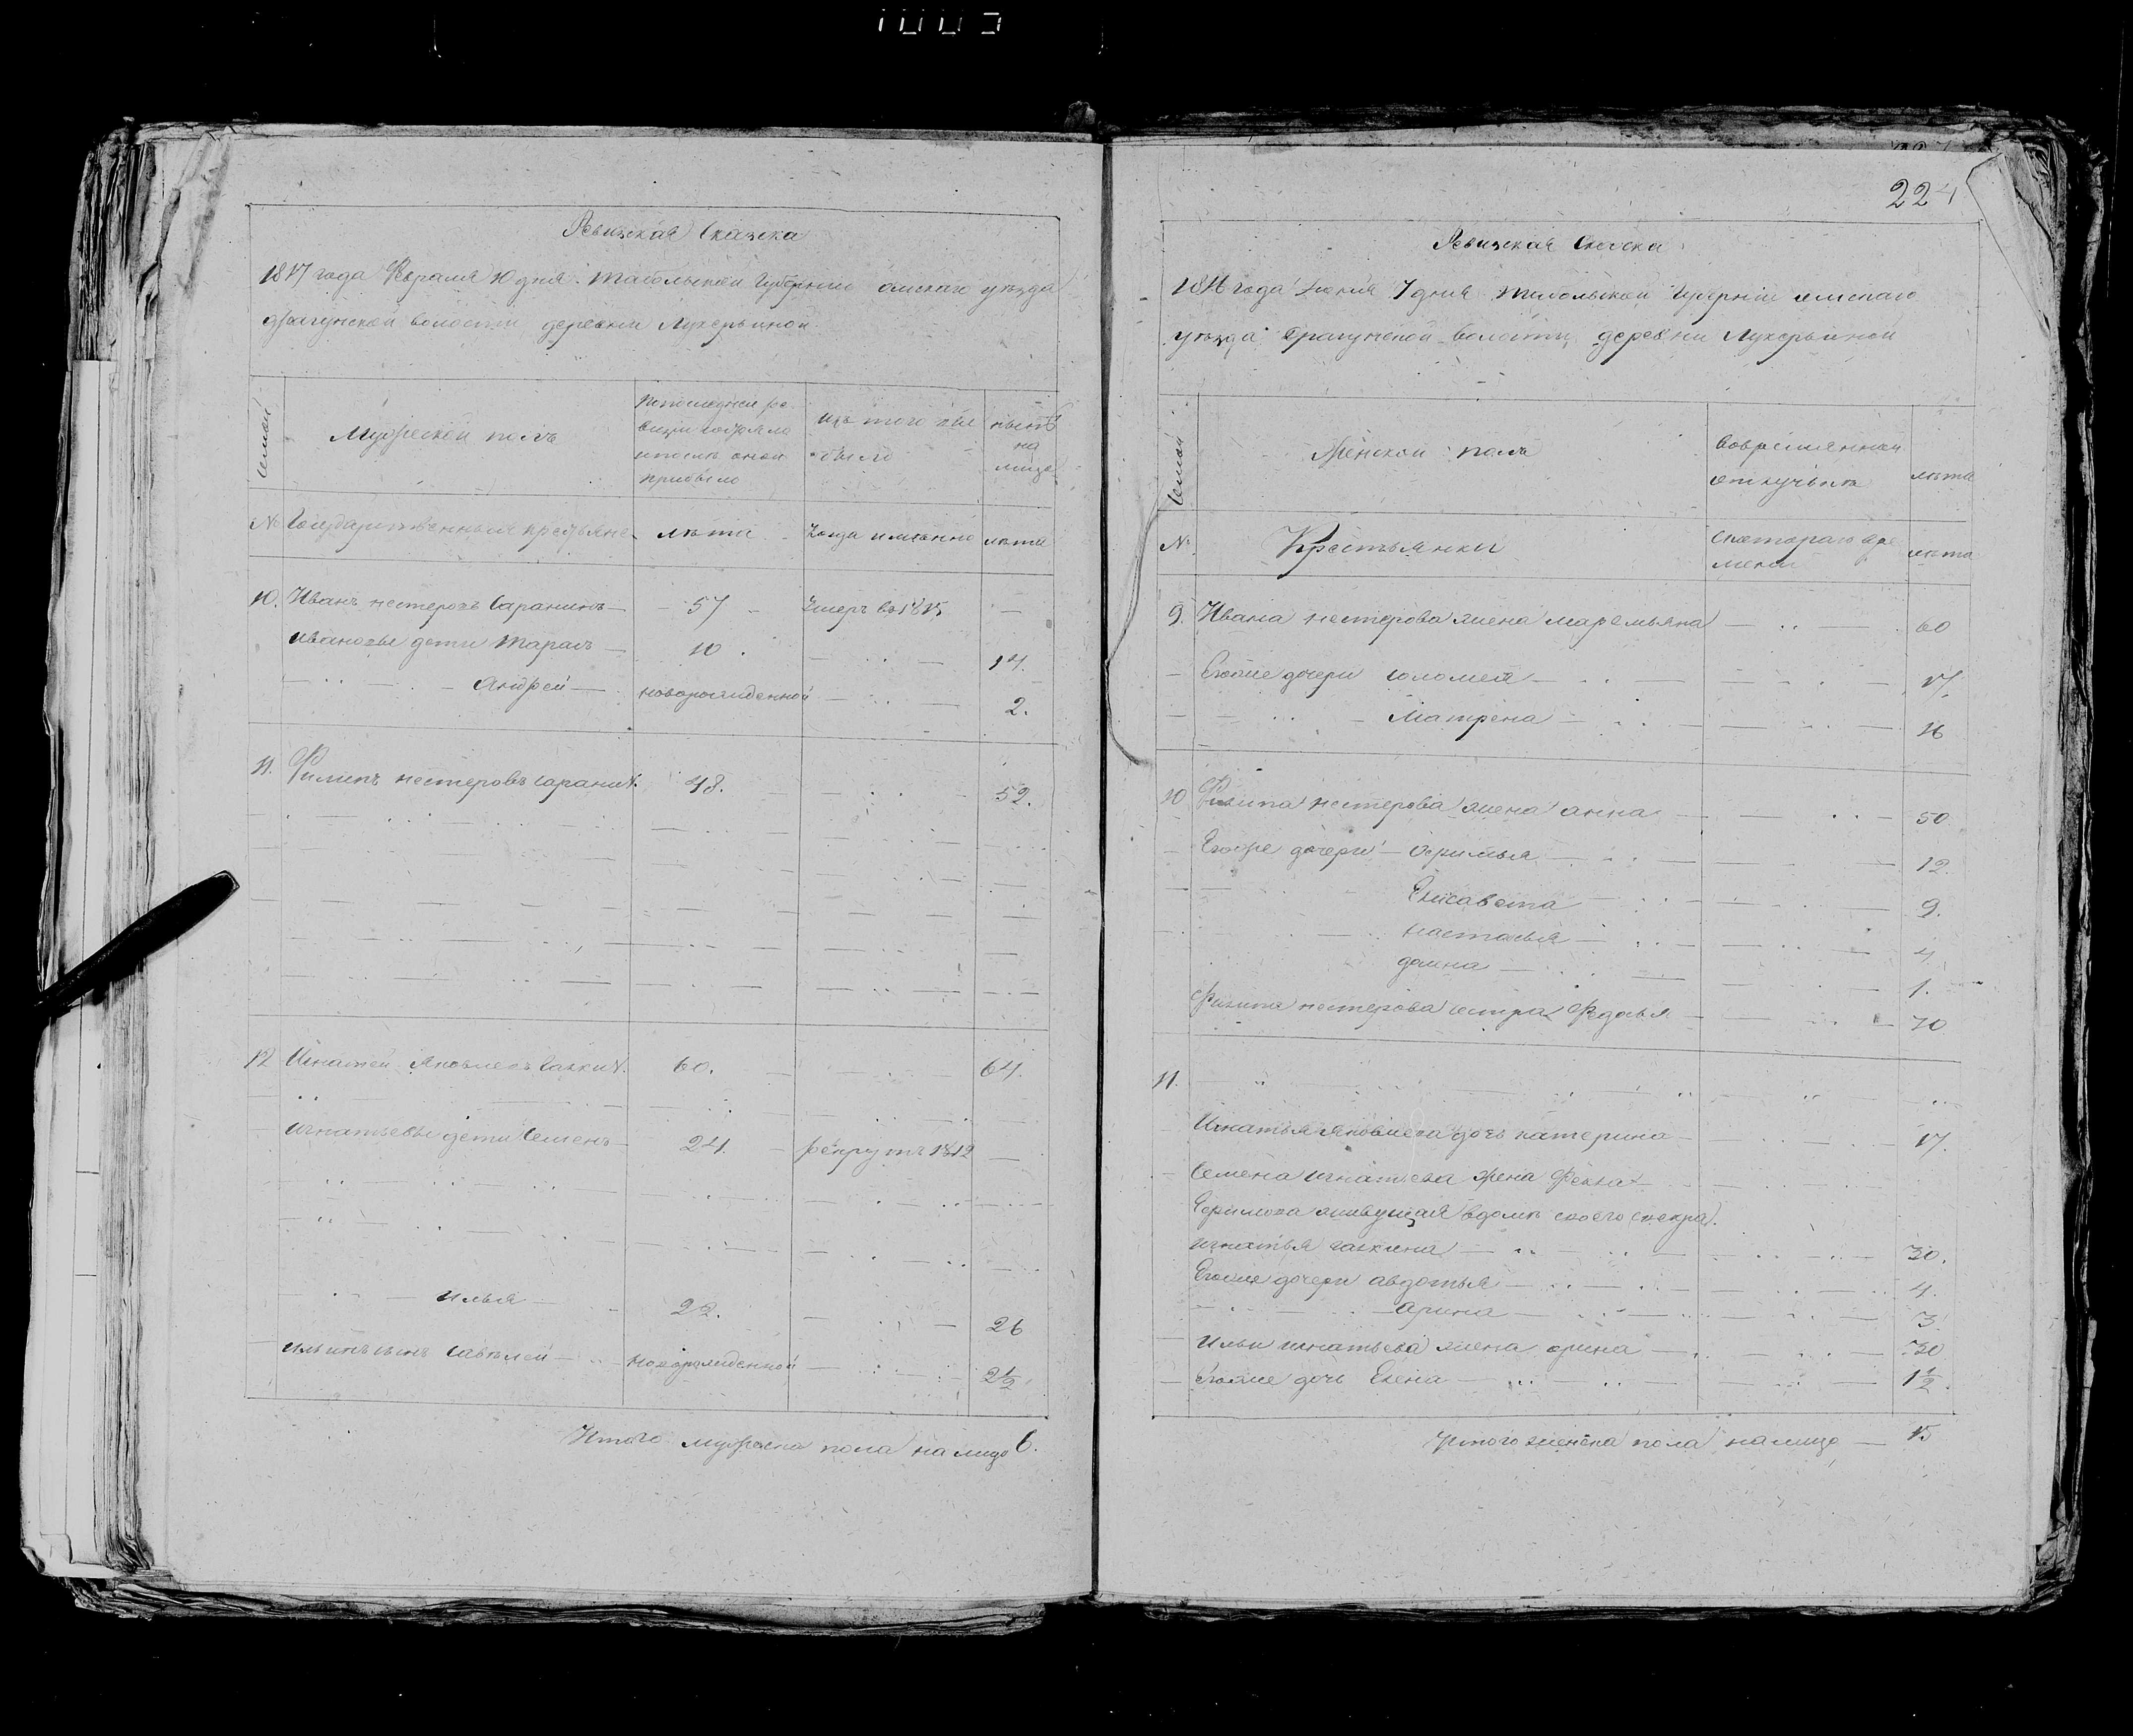 Ревизская Сказка
1817 года Февраля 10 дня Табольской Губернии омскаго уезда
драгунской волости деревни Лукерьиной
Семьи
Мужеской полъ
По последней ре
визии состояло
и после оной
прибыло
изъ того чис
было
ныне
на
лицо
№ Государственныя крестьяне
лета
Когда именно
лета
10. Иванъ нестеровъ Саранинъ — 57 Умеръ въ 1815 —
Ивановы дети Тарасъ — 10. 14.
Андрей — новорожденной 2.
11. Филипъ нестеровъ Саранин. 48. 52.
12 Игнатей Яковлевъ Галкин. 60. 64.
игнатьевы дети Семенъ 24. рекрутъ 1812 —
илья — 22. 26
ильинъ сынъ савелей — новорожденной 2½
Итого мужеска пола налицо 6.
224
Ревизская Сказка
1816 года Июня 7 дня Табольской Губернии омскаго
уезда Драгунской волости деревни Лукерьиной
Семьи
Женской полъ
вовременной
отлучьке
лета
№
Крестьянки
скотораго вре
мени
лета
9. Ивана нестерова жена маремьяна 60
Егоже дочери соломея 17.
Матрена 16
10 Филипа нестерова жена анна 50
Егоже дочери офимья 12.
Елисавета 9.
настасья 4
домна 1.
Филипа нестерова сестра Федосья 70
11.
Игнатья яковлева дочь катерина 17.
Семена игнатьева жена Фекла
Ефимова живущая вдоме своего свекра
игнатья галкина 30.
Егоже дочери авдотья 4.
арина 3
Ильи игнатьева жена орина 30
Егоже дочь Елена 1½.
Итого женска пола налицо — 15